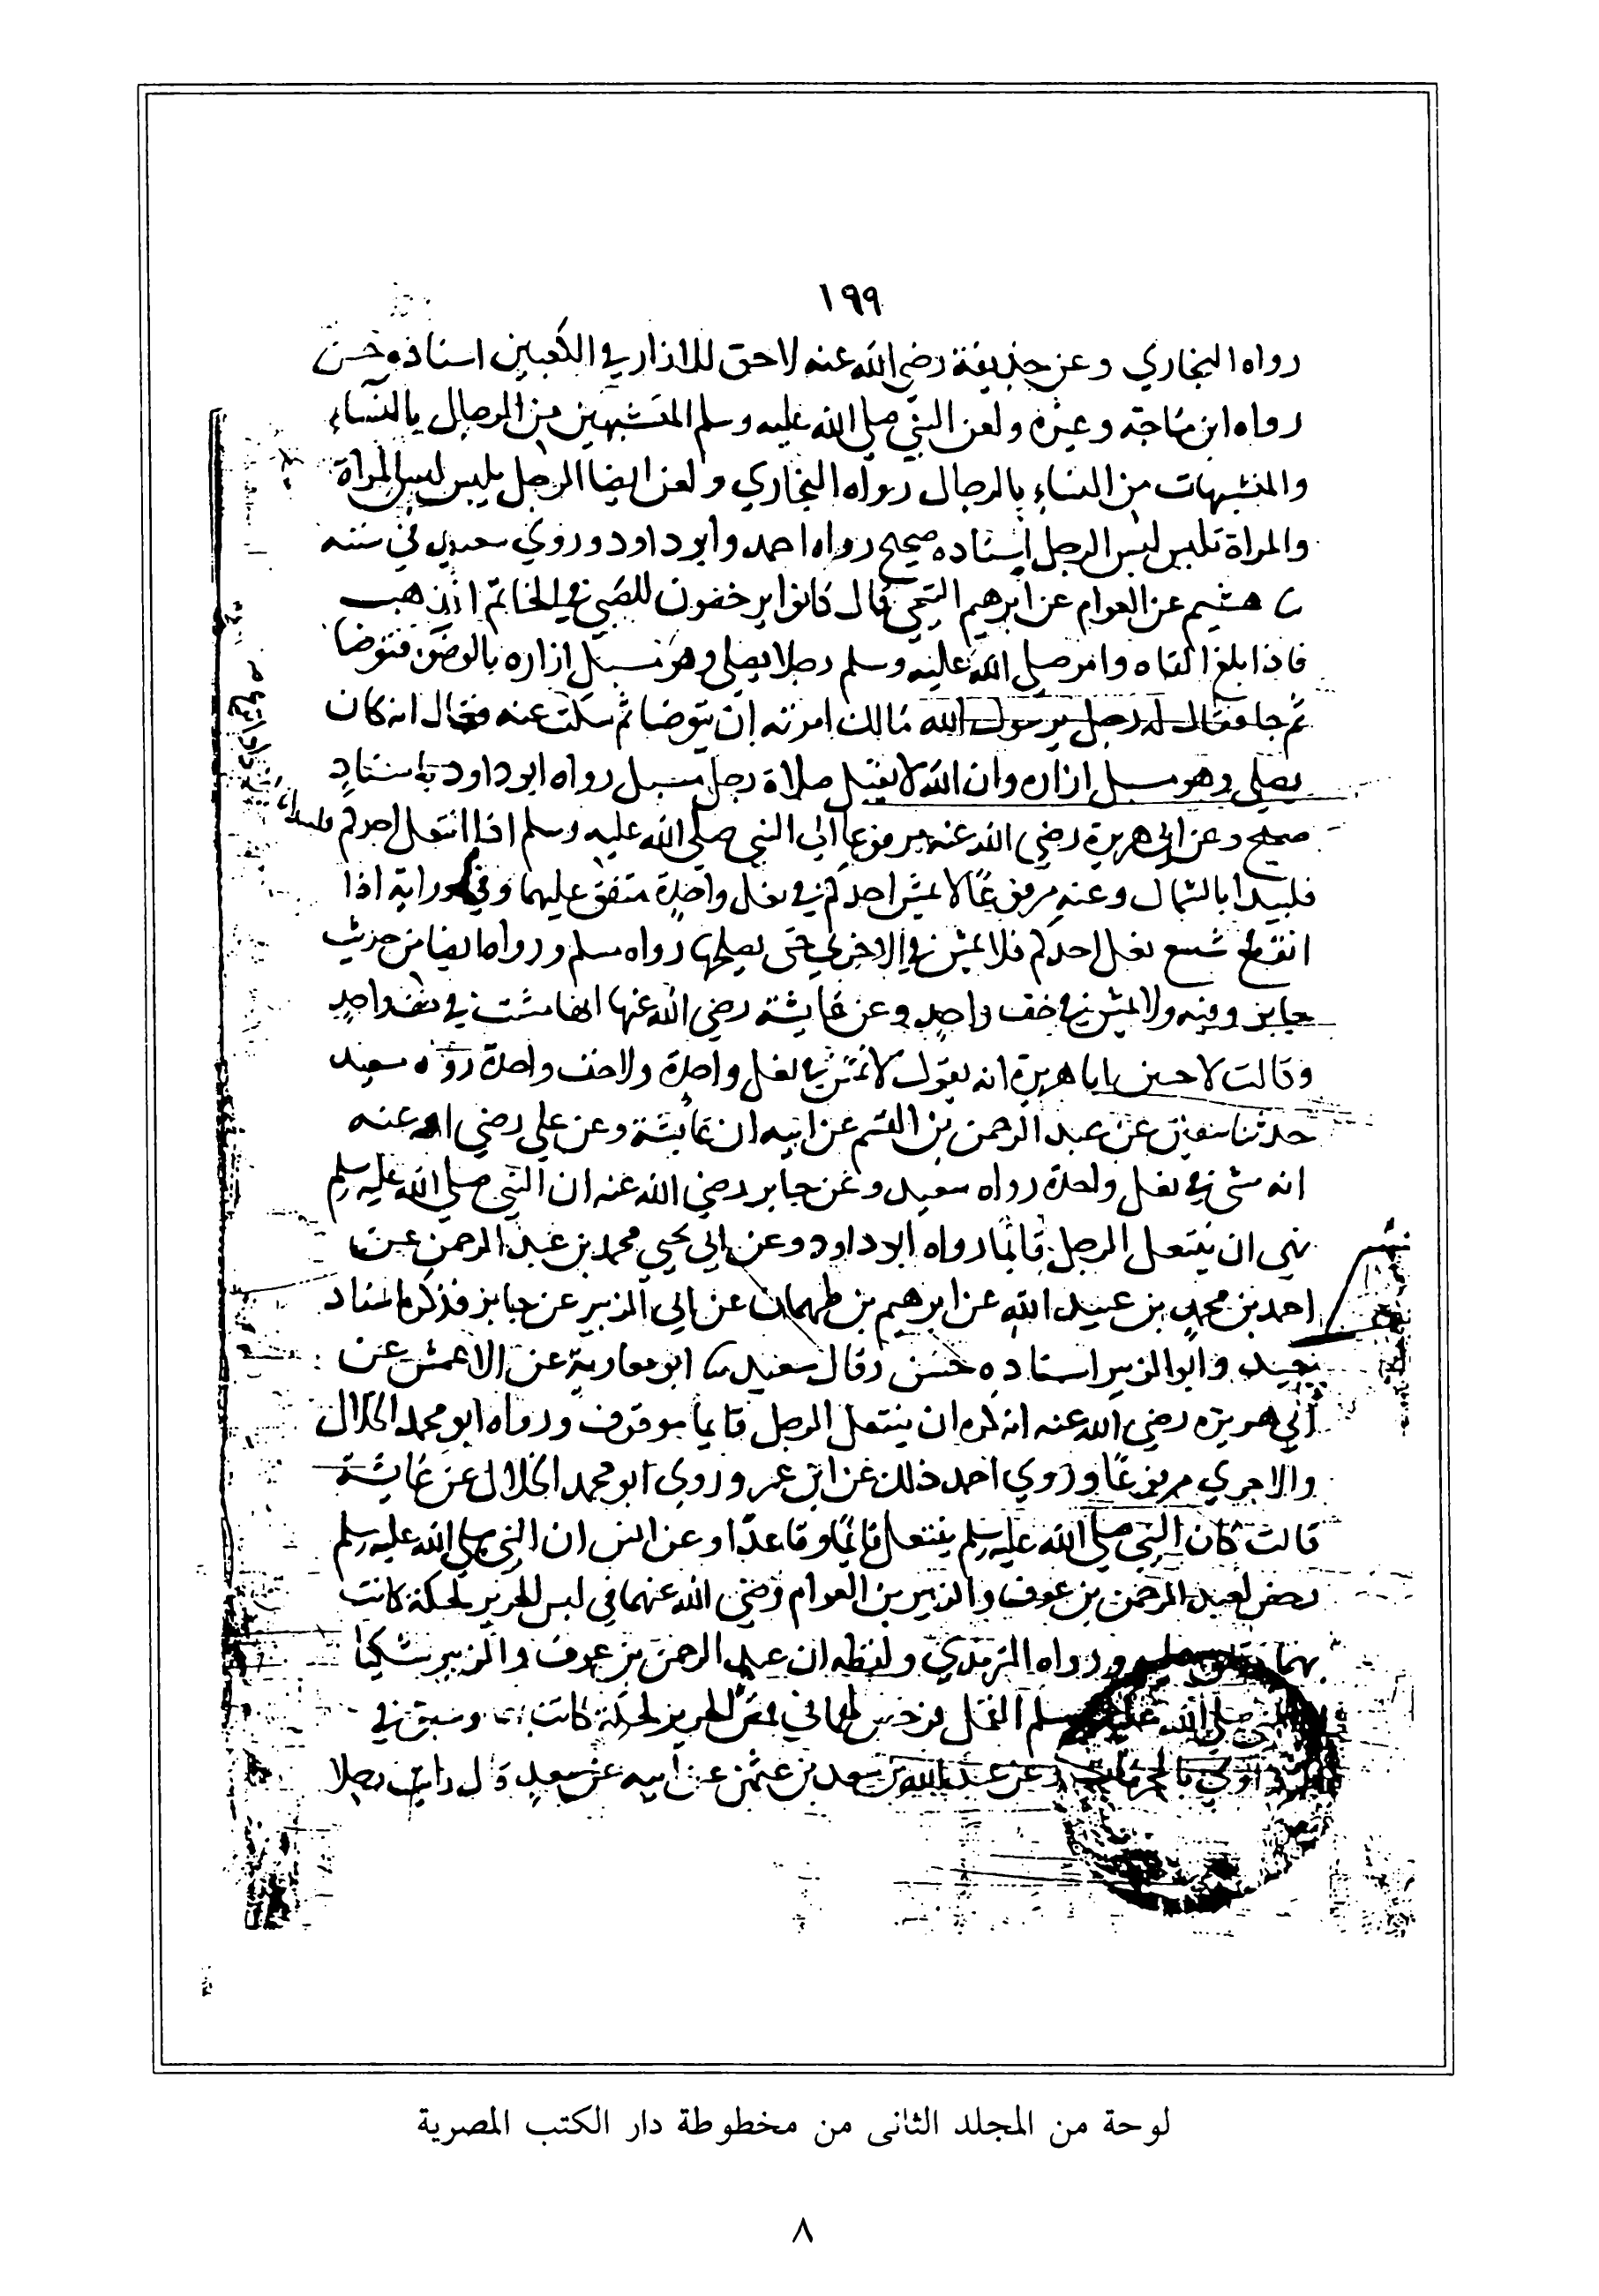 ١٩٩
رواه البخاري وعن حذيفة رضي الله عنه لا حق للازار في الكعبين اسناده حسن
رواه ابن ماجة وغيره ولعن النبي صلي الله عليه وسلم المتشبهين من الرجال بالنساء
والمتشبهات من النساء بالرجال رواه البخاري ولعن ايضا الرجل يلبس لبس المراة
والمراة تلبس لبس الرجل اسناده صحيح رواه احمد وابو داود وروي سعيد في سننه
هشيم عن العوام عن ابرهيم التيمي قال كانوا يرخصون للصبي في الخاتم الذهب
فاذا بلغ القاه وامر صلي الله عليه وسلم رجلا يصلي وهو مسبل ازاره بالوضوء فتوضا
ثم جا فقال له رجل يرسول الله مالك امرته ان يتوضا ثم سكت عنه فقال انه كان
يصلي وهو مسبل ازاره وان الله لا يقبل صلاة رجل مسبل رواه ابو داود باسناد
صحيح وعن ابي هريرة رضي الله عنه مرفوعا الي النبي صلي الله عليه وسلم اذا انتعل احدكم
فليبدا بالشمال وعنه مرفوعا لا يمش احدكم في نعل واحدة متفق عليهما وفي رواية اذا
انقطع شسع نعل احدكم فلا يمش في الاخري حتي يصلحها رواه مسلم ورواه ايضا من حديث
جابر وفيه ولا يمش في خف واحد وعن عايشة رضي الله عنها انها مشت في خف واحد
وقالت لاحنثن ابا هريرة انه يقول لا تمش في نعل واحدة ولا خف واحدة رواه سعيد
حدثنا سفين عن عبد الرحمن بن القسم عن ابيه ان عايشة وعن علي رضي الله عنه
انه مشي في نعل واحدة رواه سعيد وعن جابر رضي الله عنه ان النبي صلي الله عليه وسلم
نهي ان ينتعل الرجل قايما رواه ابو داود وعن ابي يحيي محمد بن عبد الرحمن عن
احمد بن محمد بن عبيد الله عن ابرهيم بن طهمان عن ابي الزبير عن جابر فذكره اسناد
جيد وابو الزبير اسناده حسن وقال سعيد ابو معاوية عن الاعمش عن
ابي هريرة رضي الله عنه انه كره ان ينتعل الرجل قايما موقوف ورواه ابو محمد الخلال
والاجري مرفوعا وروي احمد ذلك عن ابن عمر وروي ابو محمد الخلال عن عايشة
قالت كان النبي صلي الله عليه وسلم ينتعل قايما وقاعدا وعن انس ان النبي صلي الله عليه وسلم
رخص لعبد الرحمن بن عوف والزبير بن العوام رضي الله عنهما في لبس الحرير لحكة كانت
بهما متفق عليه ورواه الترمذي ولفظه ان عبد الرحمن بن عوف والزبير شكيا
صلي الله عليه وسلم القمل فرخص لهما في قمص الحرير لحكة كانت وسبق في
وعن عبد الله بن سعد بن عثمن عن ابيه عن سعد قال رايت رجلا
لوحة من المجلد الثانى من مخطوطة دار الكتب المصرية
٨